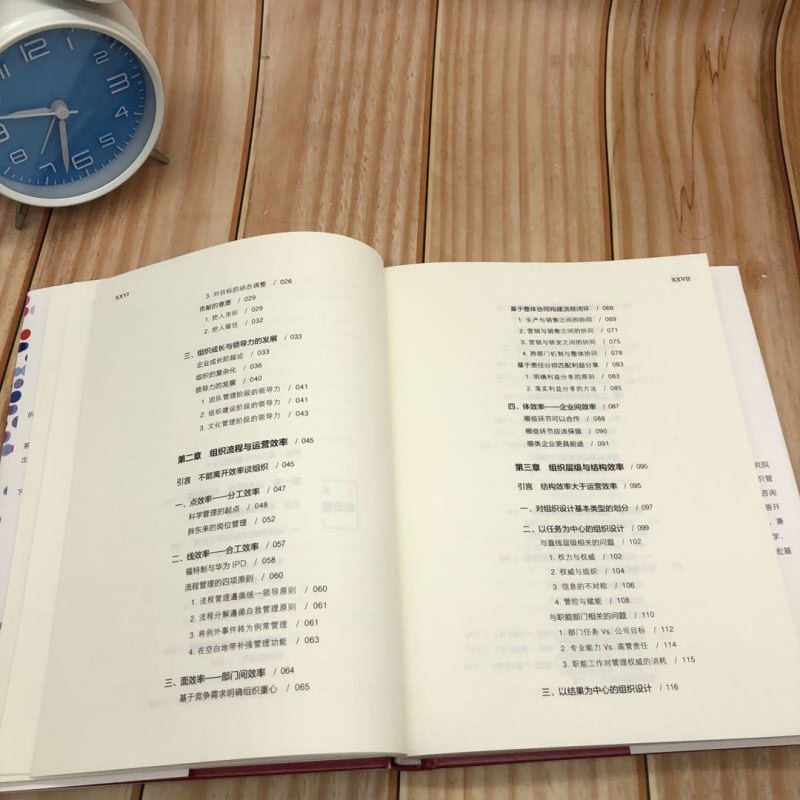 11
12
1
2
3
4
5
6
7
8
9
XXVI
3. 对目标的动态调整 / 026
贡献的意愿 / 029
1. 把人走好 / 029
2. 把人留住 / 032
三、组织成长与领导力的发展 / 033
企业成长阶段论 / 033
组织的复杂化 / 036
领导力的发展 / 040
1. 团队管理阶段的领导力 / 041
2. 组织建设阶段的领导力 / 041
3. 文化管理阶段的领导力 / 043
第二章 组织流程与运营效率 / 045
引言 不能离开效率谈组织 / 045
一、点效率——分工效率 / 047
科学管理的起点 / 048
胖东来的岗位管理 / 052
二、线效率——合工效率 / 057
福特制与华为 IPD / 058
流程管理的四项原则 / 060
1. 流程管理遵循统一领导原则 / 060
2. 流程分解遵循自我管理原则 / 061
3. 将例外事件转为例常管理 / 061
4. 在空白地带补强管理功能 / 063
三、面效率——部门间效率 / 064
基于竞争需求明确组织重心 / 065
XXVII
基于整体协同构建流程闭环 / 068
1. 生产与销售之间的协同 / 069
2. 营销与销售之间的协同 / 071
3. 营销与研发之间的协同 / 075
4. 跨部门机制与整体协同 / 078
基于责任分担匹配利益分享 / 083
1. 明确利益分享的原则 / 083
2. 落实利益分享的方法 / 085
四、体效率——企业间效率 / 087
哪些环节可以合作 / 088
哪些环节应该保留 / 090
哪类企业更具前途 / 091
第三章 组织层级与结构效率 / 095
引言 结构效率大于运营效率 / 095
一、对组织设计基本类型的划分 / 097
二、以任务为中心的组织设计 / 099
与直线层级相关的问题 / 102
1. 权力与权威 / 102
2. 权威与组织 / 104
3. 信息的不对称 / 106
4. 管控与赋能 / 108
与职能部门相关的问题 / 110
1. 部门任务 Vs. 公司目标 / 112
2. 专业能力 Vs. 高管责任 / 114
3. 职能工作对管理权威的消耗 / 115
三、以结果为中心的组织设计 / 116
织
出
下
究院
织管
咨询
善开
，兼
学、
宏基